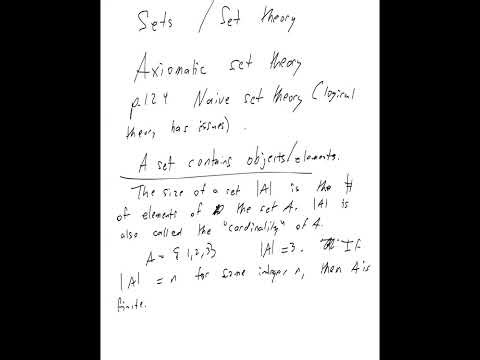 Sets / Set theory
Axiomatic set theory
p.124 Naive set theory (logical
theory has issues).
A set contains objects/elements.
The size of a set |A| is the #
of elements of the set A. |A| is
also called the "cardinality" of A.
A = {1,2,3} |A| = 3. If
|A| = n for some integer n, then A is
finite.